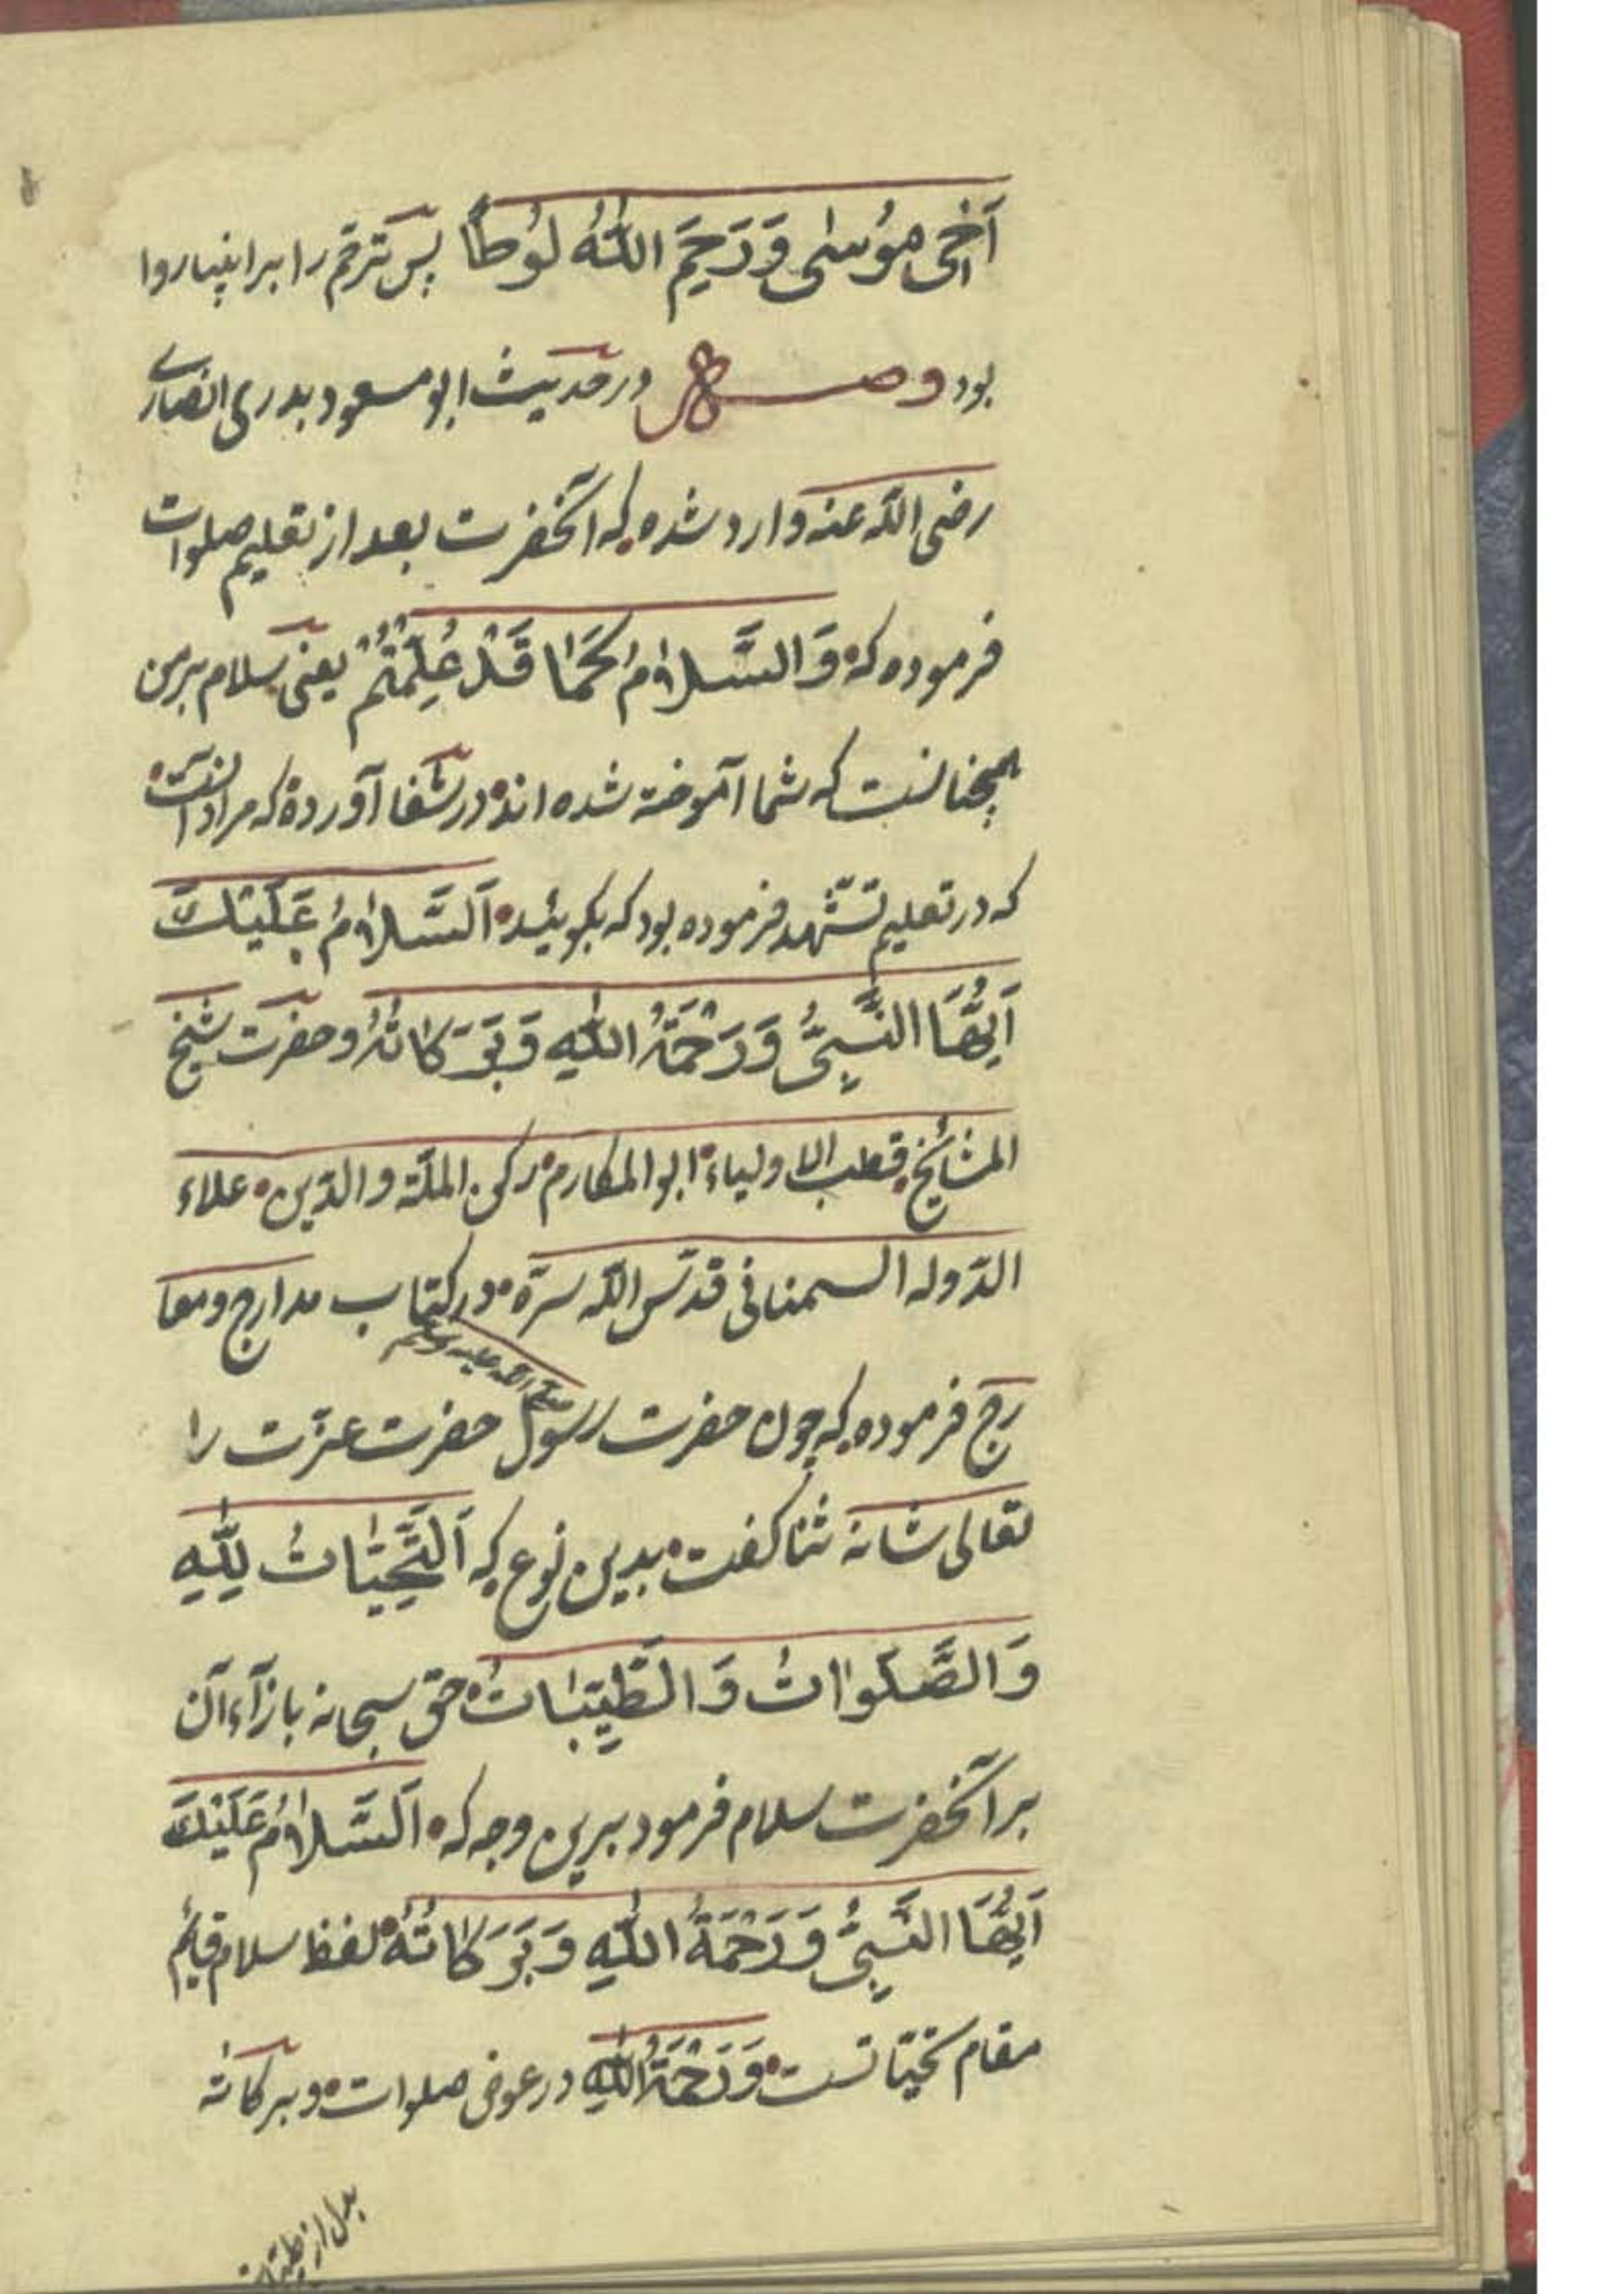 اَخِی مُوْسٰی وَرَحِمَ اللّٰهُ لُوْطًا پس ترحّم را بر انبیا روا
بود وصــــل در حدیث ابو مسعود بدری انصاری
رضی اللّه عنه وارد شده که آنحضرت بعد از تعلیم صلوات
فرموده که وَالسَّلَامُ کَمَا قَدْ عُلِّمْتُمْ یعنی سلام بر من
همچنانست که شما آموخته شده اند در شفا آورده که مراد آنست
که در تعلیم تشهد فرموده بود که بگوئید اَلسَّلَامُ عَلَیْكَ
اَیُّهَا النَّبِیُّ وَرَحْمَةُ اللّٰهِ وَبَرَکَاتُهُ و حضرت شیخ
المشائخ قطب الاولیاء ابو المکارم رکن الملّة والدّین علاء
الدّوله السمنانی قدّس اللّه سرّه در کتاب مدارج ومعا
رج فرموده که چون حضرت رسول صلی اللّه علیه وسلم حضرت عزّت را
تعالی شانه ثنا گفت بدین نوع که اَلتَّحِیَّاتُ لِلّٰهِ
وَالصَّلَوَاتُ وَالطَّیِّبَاتُ حق سبحانه بازآء آن
بر آنحضرت سلام فرمود برین وجه که اَلسَّلَامُ عَلَیْكَ
اَیُّهَا النَّبِیُّ وَرَحْمَةُ اللّٰهِ وَبَرَکَاتُهُ لفظ سلام قایم
مقام تحیّاتست وَرَحْمَةُ اللّٰهِ در عوض صلوات و برکاته
بدل از طیّبات